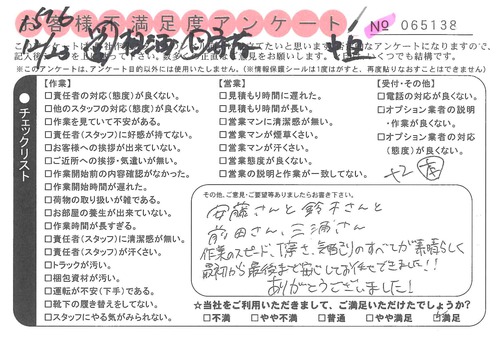 お客様不満足度アンケート
№ 065138
このアンケートは
いただきたいと思います
なアンケートになりますので、
ご意見をお
いくつでも結構です。
※このアンケートは、アンケート目的以外には使用いたしません。(※情報保護シールは1度はがすと、再度貼りなおすことはできません)
チェックリスト
【作業】
□責任者の対応(態度)が良くない。
□他のスタッフの対応(態度)が良くない。
□作業を見ていて不安がある。
□責任者(スタッフ)に好感が持てない。
□お客様への挨拶が出来ていない。
□ご近所への挨拶・気遣いが無い。
□作業開始前の内容確認がなかった。
□作業開始時間が遅れた。
□荷物の取り扱いが雑である。
□お部屋の養生が出来ていない。
□作業時間が長すぎる。
□責任者(スタッフ)に清潔感が無い。
□責任者(スタッフ)が汗くさい。
□トラックが汚い。
□梱包資材が汚い。
□運転が不安(下手)である。
□靴下の履き替えをしてない。
□スタッフにやる気がみられない。
【営業】
□見積もり時間に遅れた。
□見積もり時間が長い。
□営業マンに清潔感が無い。
□営業マンが煙草くさい。
□営業マンが汗くさい。
□営業態度が良くない。
□営業の説明と作業が一致してない。
【受付・その他】
□電話の対応が良くない。
□オプション業者の説明
・作業が良くない。
□オプション業者の対応
(態度)が良くない。
その他、ご意見・ご要望等ありましたらお書き下さい。
安藤さんと鈴木さんと
前田さん、三浦さん
作業のスピード、丁寧さ、気配りのすべてが素晴らしく
最初から最後まで安心してお任せできました!!
ありがとうございました!
★当社をご利用いただきまして、ご満足いただけたでしょうか?
□不満 □やや不満 □普通 □やや満足 □満足